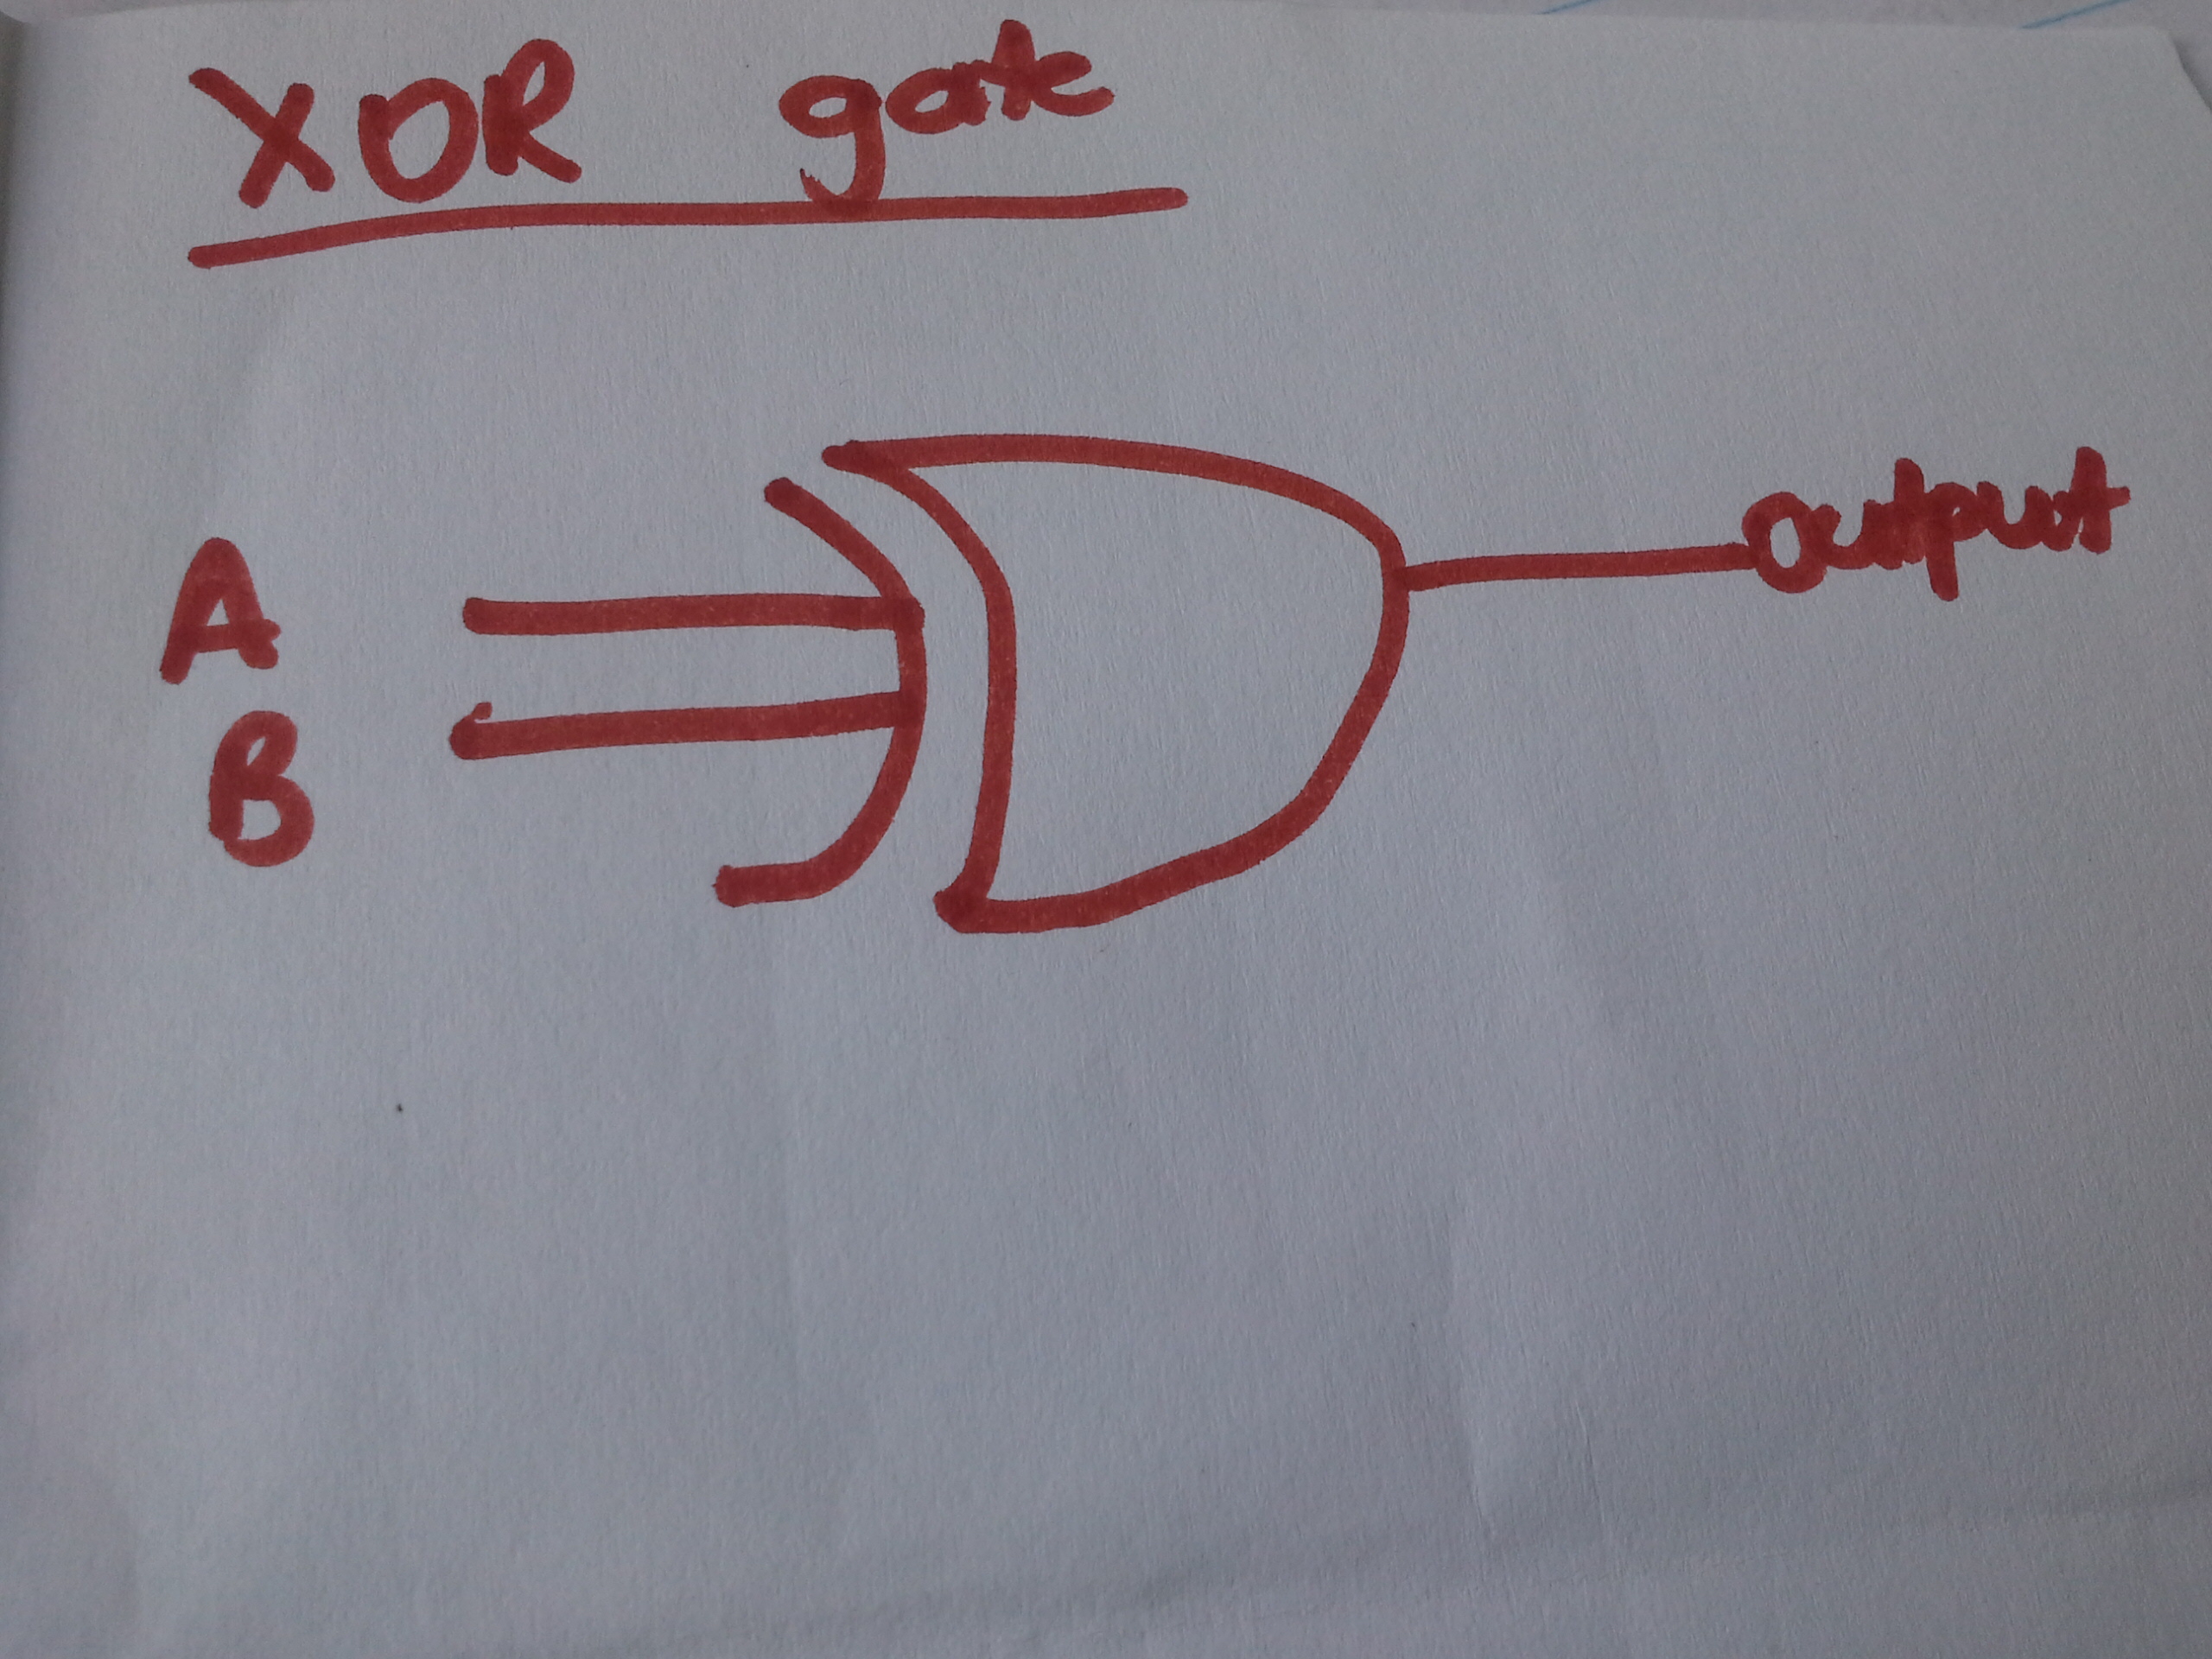 XOR gate
A
output
B